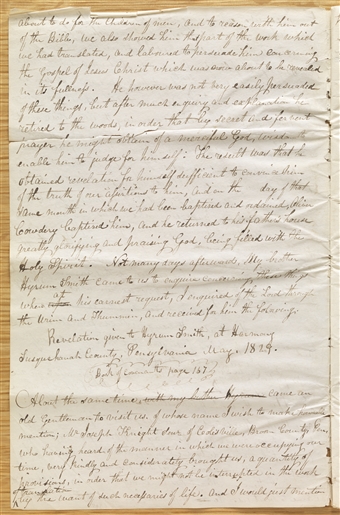 about to do for the Children of men, and to reason with him out
of the Bible, we also showed him that part of the work which
we had translated, and laboured to persuade him concerning
the Gospel of Jesus Christ which was now about to be revealed
in its fulness. He however was not very easily persuaded
of these things, but after much enquiry and explanation he
retired to the woods, in order that by secret and fervent
prayer he might obtain of a merciful God, wisdom to
enable him to judge for himself: The result was that he
obtained revelation for himself sufficient to convince him
of the truth of our assertions to him, and on the day of that
same month in which we had been baptized and ordained; Oliver
Cowdery baptized him, and he returned to his father's house
greatly glorifying and praising God, being filled with the
Holy Spirit. Not many days afterwards, My brother
Hyrum Smith came to us to enquire concerning these things
when at his earnest request, I enquired of the Lord through
the Urim and Thummim, and received for him the following.
Revelation given to Hyrum Smith, at Harmony
Susquehanah County, Pensylvania May. 1829.
Book of Cov page 167
About the same time, came an
old Gentleman to visit us, of whose name I wish to make
mention; Mr Joseph Knight Senr of Colesville, Broom County,
who having heard of the manner in which we were occupying our
time, very kindly and considerately brought us, a quantity of
provisions, in order that we might not be interrupted in the work
of translation
by the want of such necessaries of life. And I would just mention